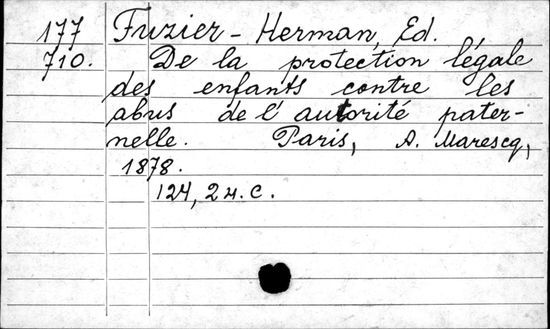 177 Fuzier-Herman, Ed.
710. De la protection légale
des enfants contre les
abus de l'autorité pater-
nelle. Paris, A. Marescq,
1878.
124, 2 н. с.